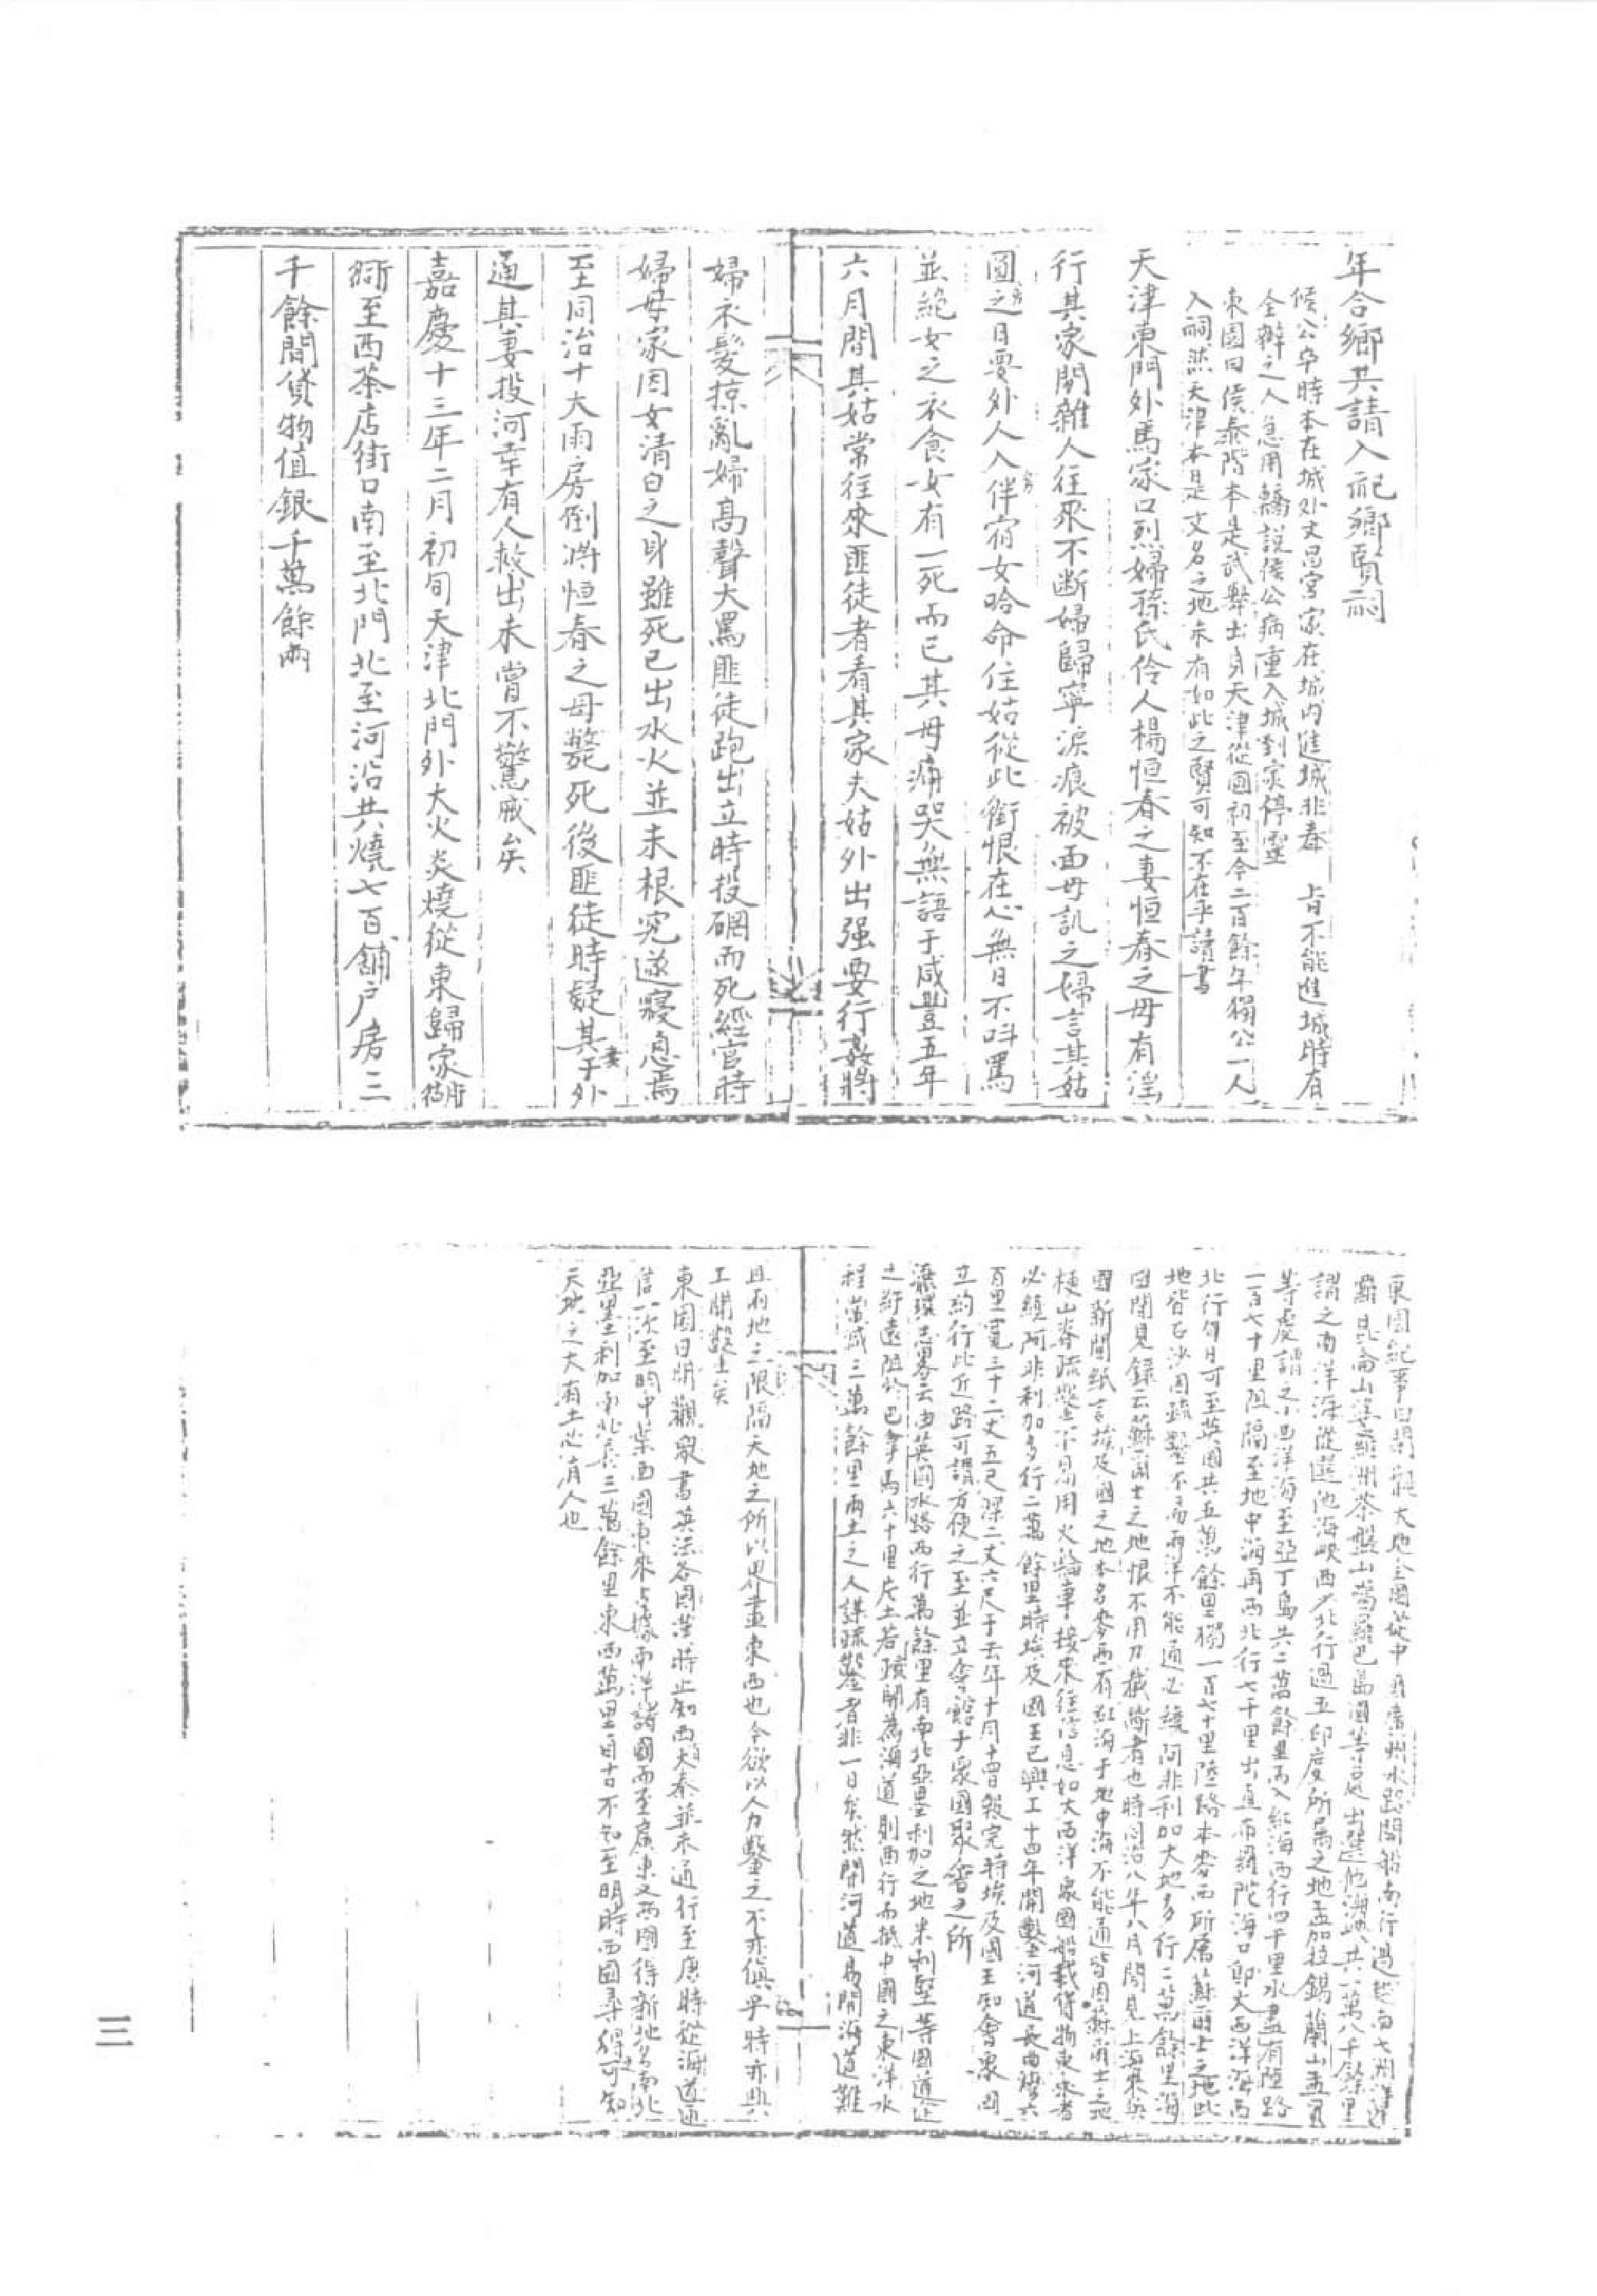 年合鄉共請入祀鄉賢祠
侯公卒時本在城外文昌宮家在城內進城非奉　旨不能進城時有
全辦之人急用轎說侯公病重入城到家停靈
東園曰侯泰階本是武舉出身天津從國初至今二百餘年獨公一人
入祠然天津本是文名之地未有如此之賢可知不在乎讀書
天津東門外馬家口烈婦孫氏伶人楊恒春之妻恒春之母有淫
行其家閒雜人往來不断婦歸寧淚痕被面母訊之婦言其姑
圓房之日要外人入房伴宿女哈命住姑從此銜恨在心無日不呌罵
並絕女之衣食女有一死而已其母痛哭無語于咸豐五年
六月間其姑常往來匪徒者看其家夫姑外出强要行姦將
婦衣髮掠亂婦高聲大罵匪徒跑出立時投磵而死經官時
婦母家因女清白之身雖死已出水火並未根究遂寢息焉
至同治十大雨房倒將恒春之母斃死後匪徒時疑其妻于外
通其妻投河幸有人救出未嘗不驚戒矣
嘉慶十三年二月初旬天津北門外大火炎燒從東歸家衚
衕至西茶店街口南至北門北至河沿共燒七百舖戶房三
千餘間貨物值銀千萬餘兩
東園紀事曰 大地全圖從中國廣州水路開船南行過越南七洲洋
崑崙山 茶盤山噶羅巴島國等處出 他海 共一萬八千餘里
謂之南洋海從 他海峽西北行過五印度所屬之地孟加拉錫蘭山孟買
等處謂之小西洋海至亞丁島共二萬餘里再入紅海西行四千里水盡有陸路
一百七十里阻隔至地中海再西北行七千里出直布羅陀海口即大西洋海再
北行 日可至英國共五萬餘里獨一百七十里陸路本麥西所屬蘇爾士之地此
地皆石沙因疏鑿不易兩洋不能通必繞阿非利加大地多行二萬餘里海
國聞見錄云蘇爾士之地恨不用刀截斷者也時同治八年八月閱見上海東
國新聞紙言埃及國之地本名麥西有紅海于地中海不能通皆因蘇爾士之地
梗山脊疏鑿不易用火輪車接來往信息如大西洋衆國船載得物東來者
必繞阿非利加多行二萬餘里時埃及國王已興工十四年開鑿河道長由 六
百里寬三十二丈五尺深二丈六尺于去年十月十四日報完時埃及國王知會衆國
立約行此近路可謂方便之至並立會館于衆國聚會之所
瀛環志畧云由英國水路西行萬餘里有南北亞墨利加之地米利堅等國道
之紆遠阻於巴拿馬六十里片土若疏開爲海道則西行而抵中國之東洋水
程當減二萬餘里兩土之人謀疏鑿者非一日矣然開河道易開海道難
且兩地之限隔天地之所以界畫東西也今欲以人力鑿之不亦偵乎特亦興
工開鑿矣
東園曰明觀衆書英法各國漢時止知西大秦並未通行至唐時從海道通
信一次至明中葉西國東來占據南洋諸國而至廣東又西國得新地名南北
亞墨利加南北長三萬餘里東西萬里自古不知至明時西國尋得可知
天地之大有土必有人也
三